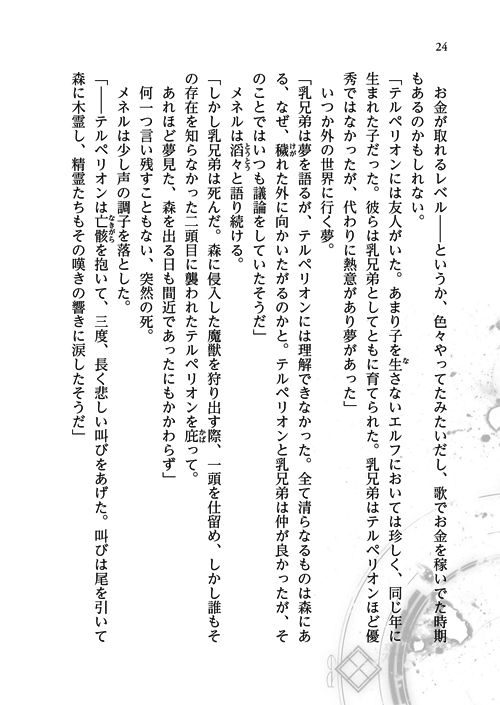 24
お金が取れるレベル――というか、色々やってたみたいだし、歌でお金を稼いでた時期
もあるのかもしれない。
「テルペリオンには友人がいた。あまり子を生さないエルフにおいては珍しく、同じ年に
生まれた子だった。彼らは乳兄弟としてともに育てられた。乳兄弟はテルペリオンほど優
秀ではなかったが、代わりに熱意があり夢があった」
いつか外の世界に行く夢。
「乳兄弟は夢を語るが、テルペリオンには理解できなかった。全て清らなるものは森にあ
る、なぜ、穢れた外に向かいたがるのかと。テルペリオンと乳兄弟は仲が良かったが、そ
のことではいつも議論をしていたそうだ」
メネルは滔々と語り続ける。
「しかし乳兄弟は死んだ。森に侵入した魔獣を狩り出す際、一頭を仕留め、しかし誰もそ
の存在を知らなかった二頭目に襲われたテルペリオンを庇って。
あれほど夢見た、森を出る日も間近であったにもかかわらず」
何一つ言い残すこともない、突然の死。
メネルは少し声の調子を落とした。
「――テルペリオンは亡骸を抱いて、三度、長く悲しい叫びをあげた。叫びは尾を引いて
森に木霊し、精霊たちもその嘆きの響きに涙したそうだ」